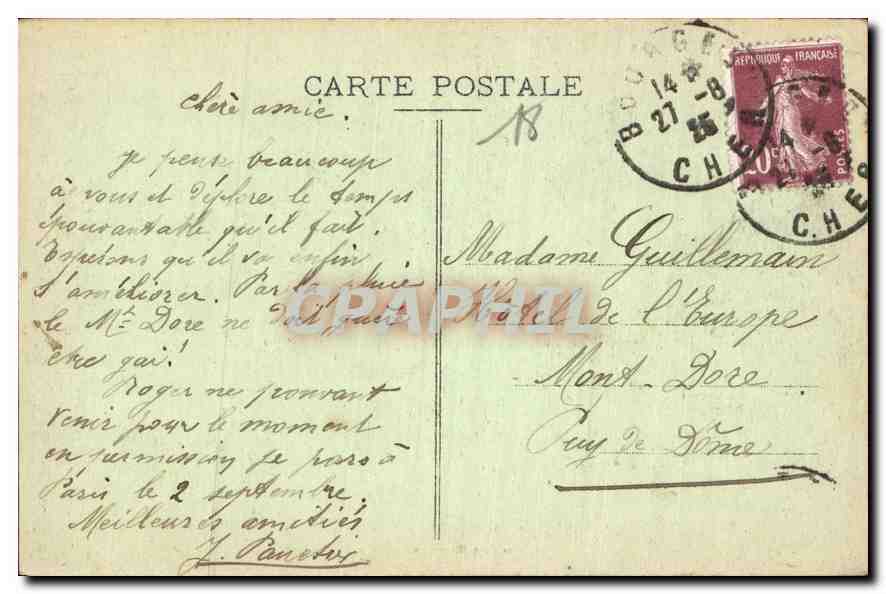 CARTE POSTALE
Chère amie.
Je pense beaucoup
à vous et déplore le temps
épouvantable qu'il fait.
Espérons qu'il va enfin
s'améliorer. Par la pluie
le Mt Dore ne doit guère
être gai!
Roger ne pouvant
venir pour le moment
en permission je pars à
Paris le 2 septembre.
Meilleures amitiés
J.
18
BOURGES
14
27 -8
25
CHER
REPUBLIQUE FRANÇAISE
20c
POSTES
CHER
Madame Guillemain
Hôtel de l'Europe
Mont-Dore
Puy de Dôme
CPAPHIL